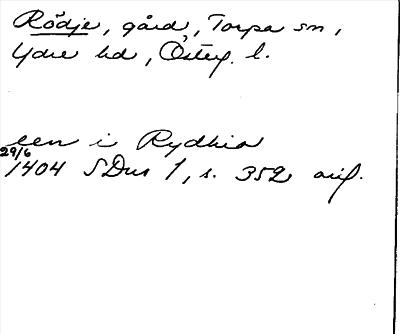 Rödje, gård, Torpa sn,
Ydre hd, Österg. l.
een i Rydhia
29/6
1404 SDns 1, s. 352 orig.